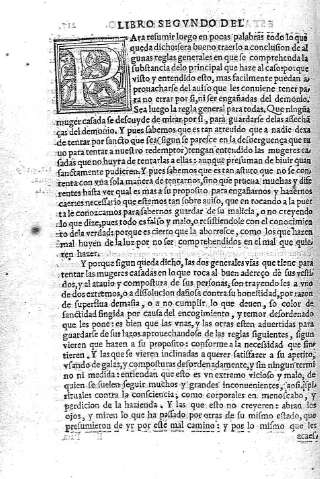 LIBRO SEGVNDO DEL
PAra resumir luego en pocas palabras todo lo que
queda dicho sera bueno traerlo a conclusion de al
gunas reglas generales en que se comprehenda la
substancia delo principal que haze al caso: porque
visto y entendido esto, mas facilmente puedan a
prouecharse del auiso que les conuiene tener pa
ra no errar por si, ni ser engañadas del demonio.
Sea luego la regla general para todas. Que ninguna
muger casada se descuyde de mirar por si, para guardarse delas asecha
ças del demonio. Y pues sabemos que es tan atreuido que a nadie dexa
de tentar por sancto que sea: segun se paresce en la desuerguença que tu
uo para tentar a nuestro redemptor: tengan entendido las mugeres ca
sadas que no huyra de tentarlas a ellas: aunque presuman de biuir quan
sanctamente pudieren. Y pues sabemos que es tan astuto que no se con
tenta con vna sola manera de tentarnos, sino que prueua muchas y dife
rentes hasta ver qual es mas a su proposito para engañarnos y hazernos
caer: es necessario que estemos tan sobre auiso, que en tocando a la puer
ta le conozcamos para sabernos guardar de su malicia, o no creyendo
lo que dize, pues todo es falso y malo, o resistiendole con el conocimien
to dela verdad: porque es cierto que la aborresce, como los que hazen
mal huyen de la luz por no ser comprehendidos en el mal que quie
ren hazer.
Y porque segun queda dicho, las dos generales vias que tiene para
tentar las mugeres casadas en lo que toca al buen adereço de sus vesti
dos, y al atauio y compostura de sus personas, son trayendo les a vno
de dos extremos, o a dissolucion dañosa contra su honestidad, por razon
de superflua demasia, o a no cumplir lo que deuen, so color de
sanctidad fingida por causa del encogimiento, y temor desordenado
que les pone: es bien que las vnas, y las otras esten aduertidas para
guardarse de sus lazos aprouechandose de las reglas siguientes, segun
vieren que hazen a su proposito: conforme a la necessidad que sin
tieren. Y las que se vieren inclinadas a querer satisfazer a su apetito,
vsando de galas, y composturas desordenadamente, y sin ningun termi
no ni medida: entiendan que esto es vn extremo vicioso y malo, de
quien se suelen seguir muchos y grandes inconuenientes, assi spi
rituales contra la consciencia, como corporales en menoscabo, y
perdicion de la hazienda. Y las que esto no creyeren: abran los
ojos, y miren lo que ha passado por otras de su mismo estado, que
presumieron de yr por este mal camino: y por lo mismo que les
acaes